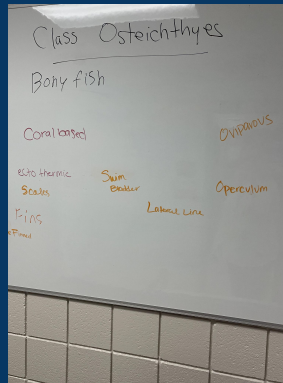 Class Osteichthyes
Bony fish
Coral based
Oviparous
ecto thermic
Swim
Bladder
Scales
Operculum
Lateral Line
Fins
Food